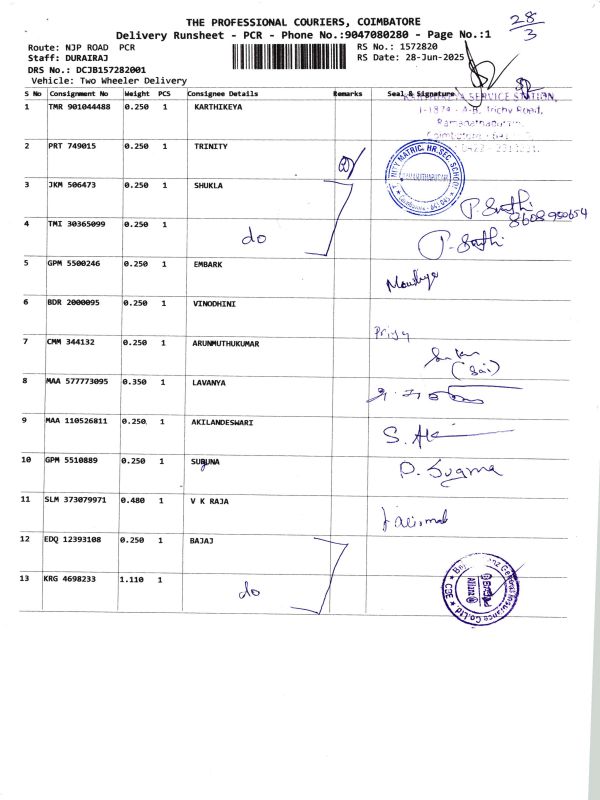 THE PROFESSIONAL COURIERS, COIMBATORE
28/3
Delivery Runsheet - PCR - Phone No.:9047080280 - Page No.:1
Route: NJP ROAD PCR
RS No.: 1572820
Staff: DURAIRAJ
RS Date: 28-Jun-2025
DRS No.: DCJB157282001
Vehicle: Two Wheeler Delivery
S No Consignment No Weight PCS Consignee Details Remarks Seal & Signature
1 TMR 901044488 0.250 1 KARTHIKEYA
SERVICE STATION,
Trichy Road,
Ramanathapuram,
Coimbatore
2 PRT 749015 0.250 1 TRINITY
MATRIC. HR. SEC. SCHOOL
3 JKM 506473 0.250 1 SHUKLA
8608950654
4 TMI 30365099 0.250 1 do
5 GPM 5500246 0.250 1 EMBARK
6 BDR 2000095 0.250 1 VINODHINI
Priya
7 CMM 344132 0.250 1 ARUNMUTHUKUMAR
(Sai)
8 MAA 577773095 0.350 1 LAVANYA
9 MAA 110526811 0.250 1 AKILANDESWARI
10 GPM 5510889 0.250 1 SUGUNA
P. Sugma
11 SLM 373079971 0.480 1 V K RAJA
12 EDQ 12393108 0.250 1 BAJAJ
13 KRG 4698233 1.110 1 do
General Insurance Co.Ltd
CBE